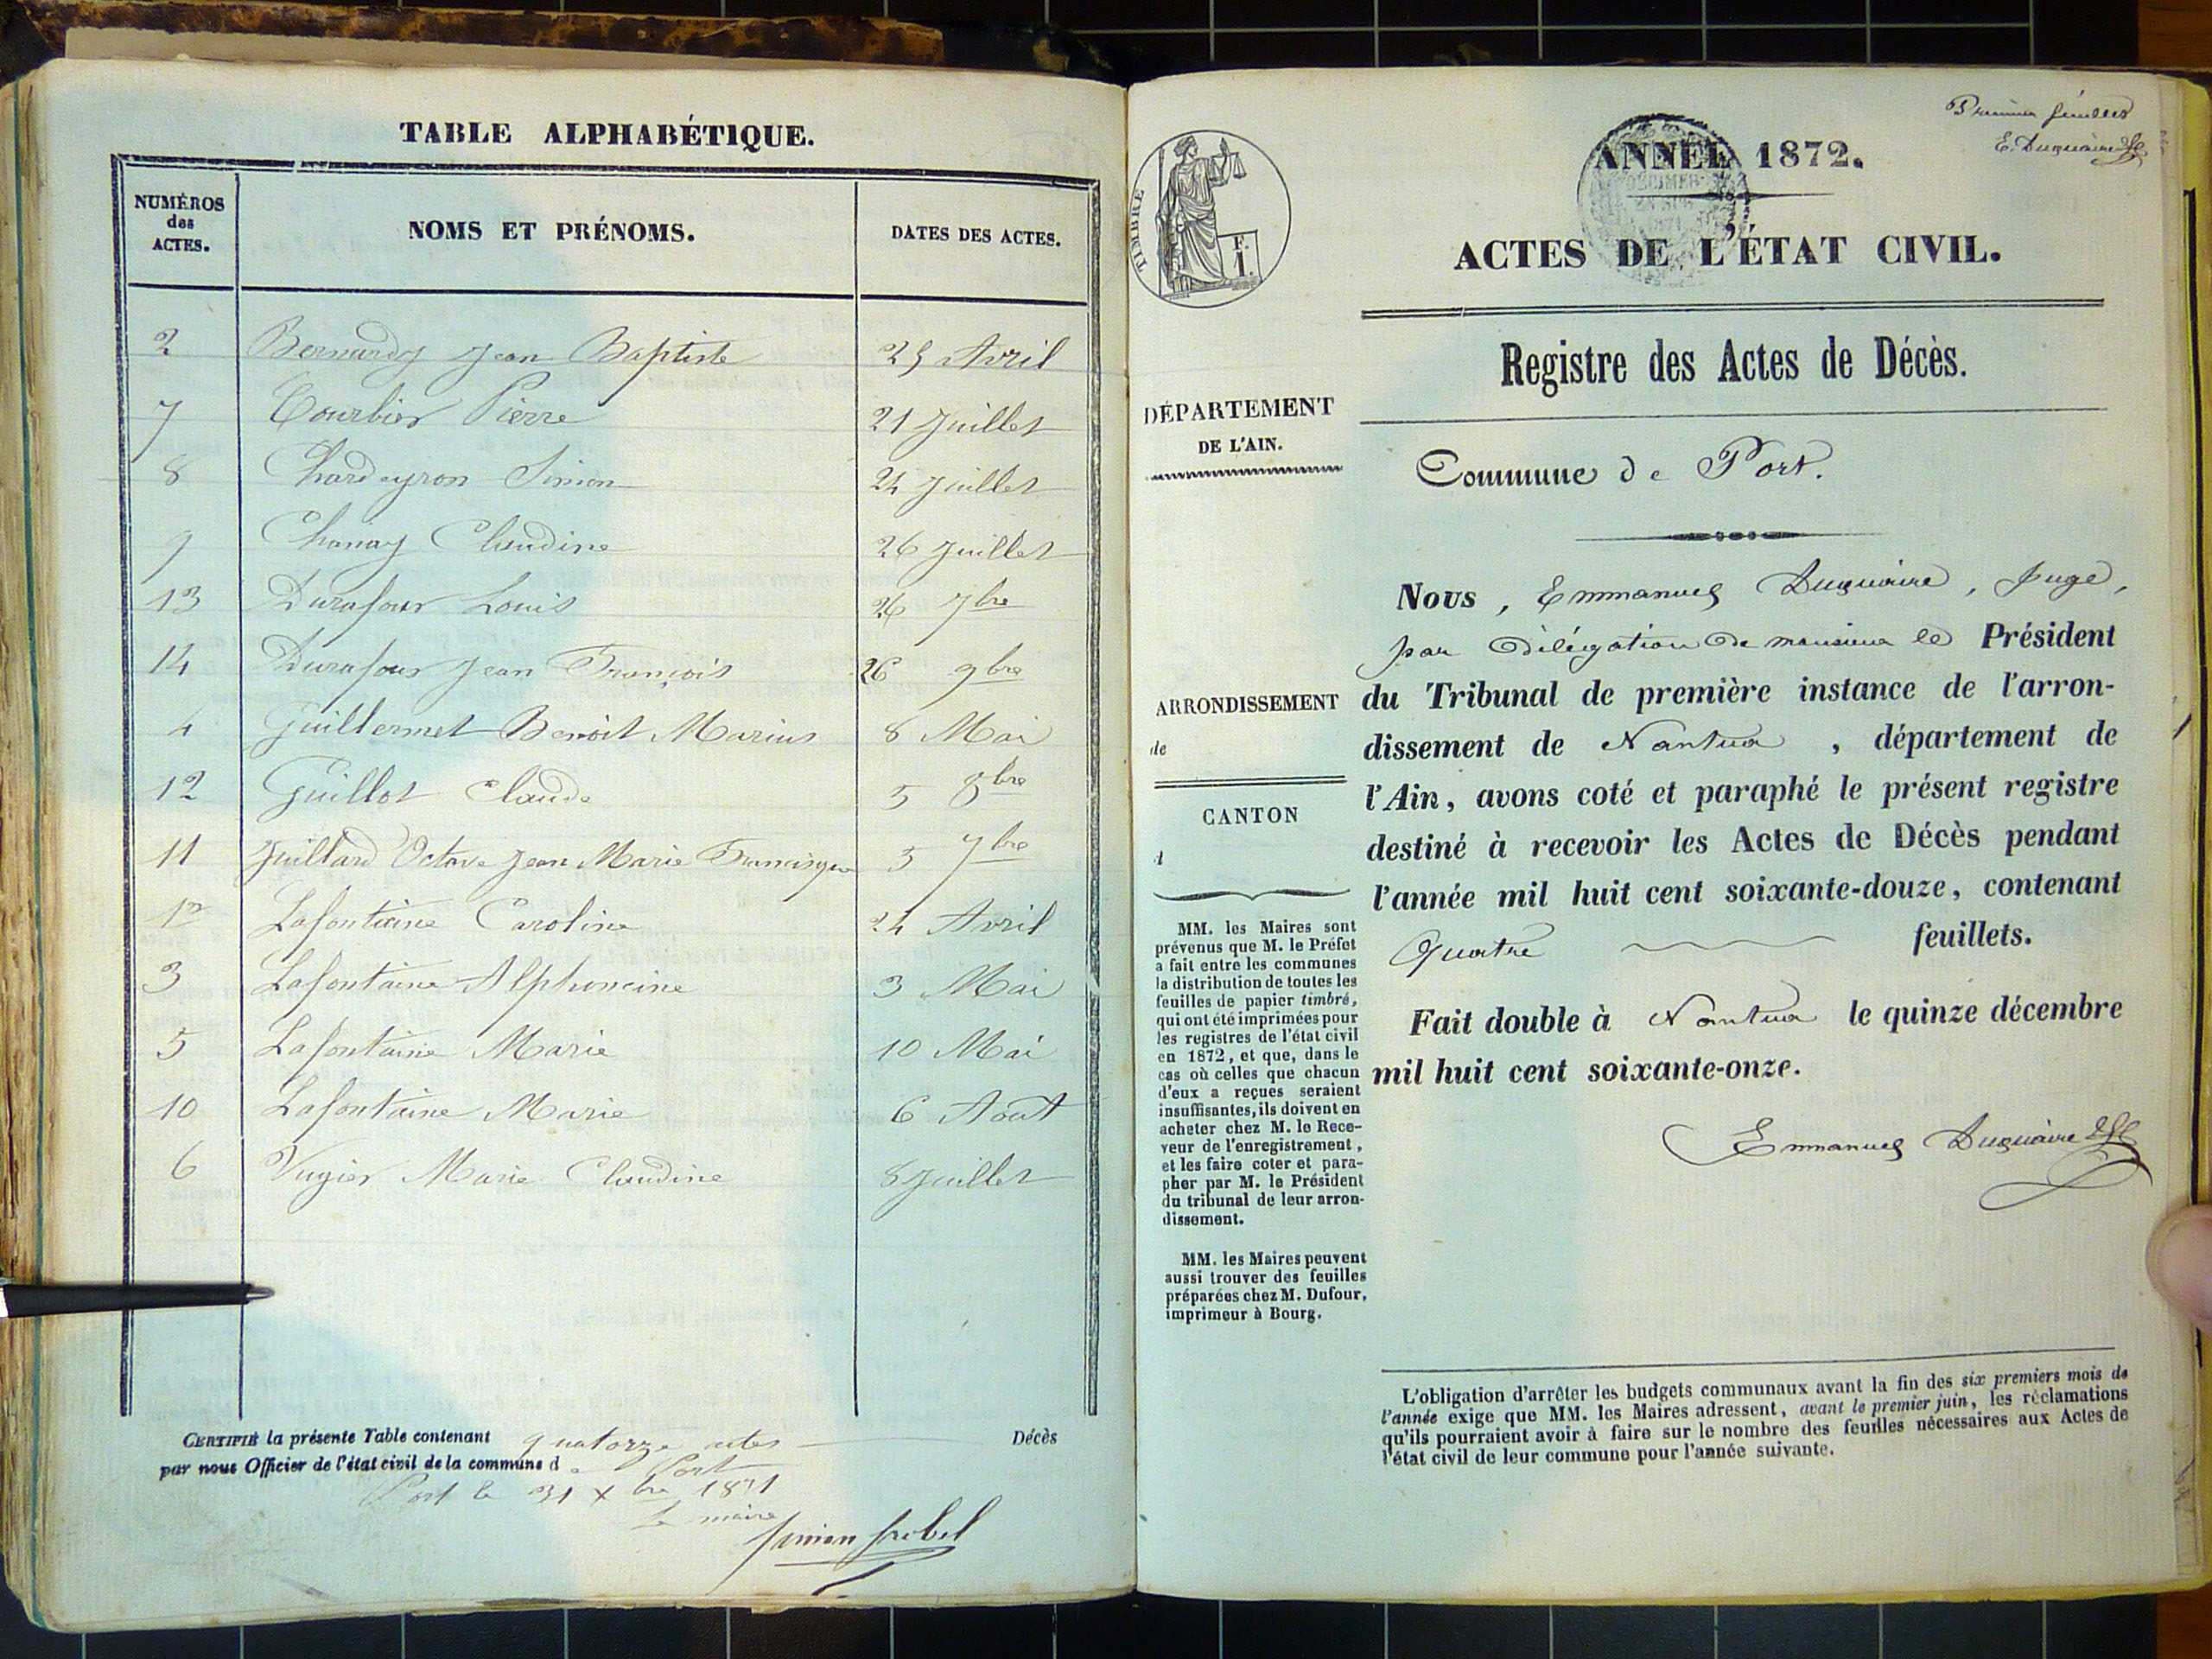 TABLE ALPHABÉTIQUE.
NUMÉROS
des
ACTES.
NOMS ET PRÉNOMS.
DATES DES ACTES.
2 Bernardy Jean Baptiste 25 Avril
7 Courbier Pierre 21 Juillet
8 Chardeyron Simon 24 Juillet
9 Chanay Claudine 26 Juillet
13 Durafour Louis 26 7bre
14 Durafour Jean François 26 9bre
4 Guillermet Benoit Marius 8 Mai
12 Guillot Claude 5 8bre
11 Juillard Octave Jean Marie Francisque 5 7bre
1er Lafontaine Caroline 24 Avril
3 Lafontaine Alphoncine 3 Mai
5 Lafontaine Marie 10 Mai
10 Lafontaine Marie 6 Août
6 Vugier Marie Claudine 8 Juillet
CERTIFIÉ la présente Table contenant quatorze actes Décès
par nous Officier de l'état civil de la commune de Port
Port le 31 Xbre 1871
Le maire
TIMBRE
F.
1.
Premier feuillet
E. Duquaire
ANNÉE 1872.
ACTES DE L'ÉTAT CIVIL.
Registre des Actes de Décès.
DÉPARTEMENT
DE L'AIN.
Commune de Port.
Nous, Emmanuel Duquaire, Juge,
par délégation de monsieur le Président
du Tribunal de première instance de l'arron-
dissement de Nantua, département de
l'Ain, avons coté et paraphé le présent registre
destiné à recevoir les Actes de Décès pendant
l'année mil huit cent soixante-douze, contenant
Quatre feuillets.
Fait double à Nantua le quinze décembre
mil huit cent soixante-onze.
Emmanuel Duquaire
ARRONDISSEMENT
de
CANTON
d
MM. les Maires sont
prévenus que M. le Préfet
a fait entre les communes
la distribution de toutes les
feuilles de papier timbré,
qui ont été imprimées pour
les registres de l'état civil
en 1872, et que, dans le
cas où celles que chacun
d'eux a reçues seraient
insuffisantes, ils doivent en
acheter chez M. le Rece-
veur de l'enregistrement,
et les faire coter et para-
pher par M. le Président
du tribunal de leur arron-
dissement.
MM. les Maires peuvent
aussi trouver des feuilles
préparées chez M. Dufour,
imprimeur à Bourg.
L'obligation d'arrêter les budgets communaux avant la fin des six premiers mois de
l'année exige que MM. les Maires adressent, avant le premier juin, les réclamations
qu'ils pourraient avoir à faire sur le nombre des feuilles nécessaires aux Actes de
l'état civil de leur commune pour l'année suivante.